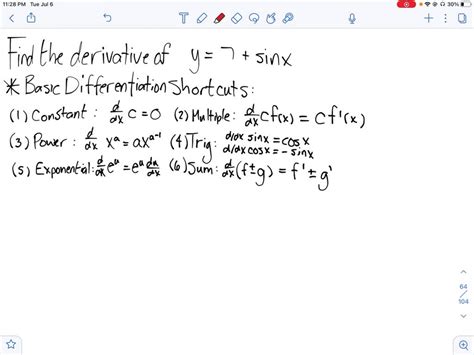 11:28 PM Tue Jul 6
30%
Find the derivative of y = 7 + sinx
* Basic Differentiation Shortcuts:
(1) Constant: d/dx c = 0 (2) Multiple: d/dx cf(x) = cf'(x)
(3) Power: d/dx x^a = ax^(a-1) (4) Trig: d/dx sinx = cosx
d/dx cosx = -sinx
(5) Exponential: d/dx e^u = e^u du/dx (6) Sum: d/dx (f±g) = f' ± g'
64
/
104